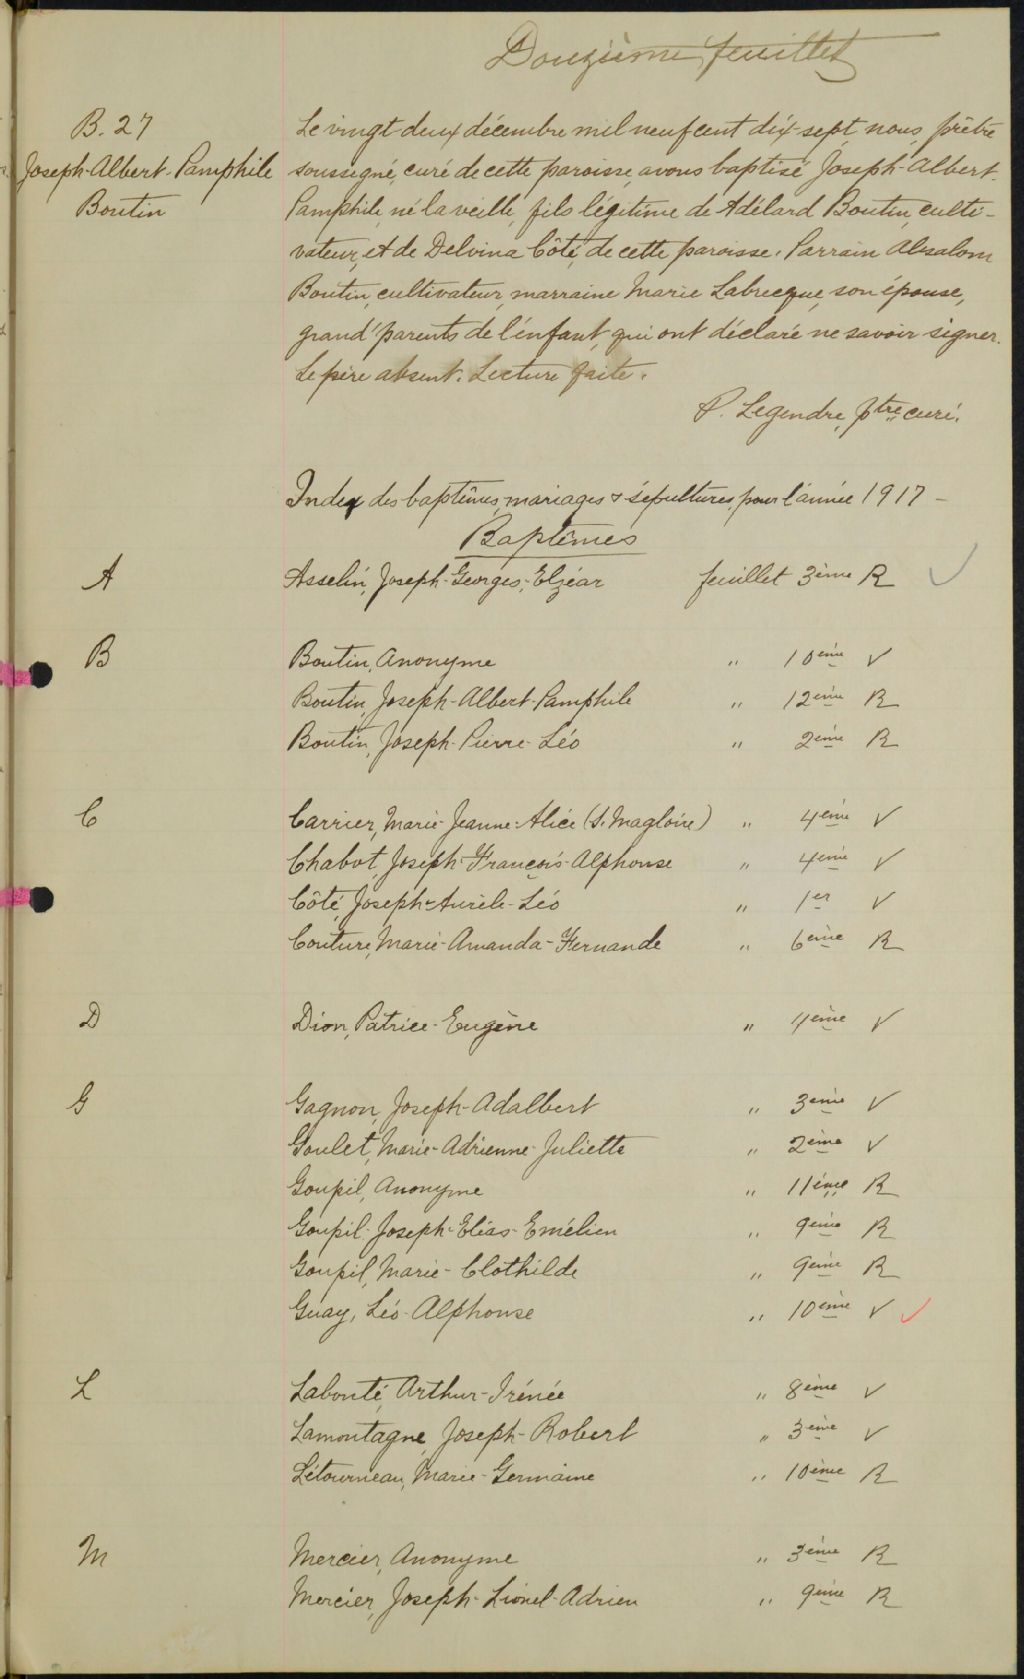 Douzième feuillet
B. 27
Joseph-Albert-Pamphile
Boutin
Le vingt-deux décembre mil neuf cent dix-sept, nous, prêtre
soussigné, curé de cette paroisse, avons baptisé Joseph-Albert-
Pamphile, né la veille, fils légitime de Adélard Boutin, culti-
vateur, et de Delvina Côté, de cette paroisse. Parrain Absalom
Boutin, cultivateur, marraine Marie Labrecque, son épouse,
grand'parents de l'enfant, qui ont déclaré ne savoir signer.
Le père absent. Lecture faite.
P. Legendre, ptre curé.
Index des baptêmes, mariages & sépultures, pour l'année 1917 -
Baptêmes
A Asselin, Joseph-Georges-Elzéar feuillet 3ème R
B Boutin, Anonyme " 10ème V
Boutin, Joseph-Albert-Pamphile " 12ème R
Boutin, Joseph-Pierre-Léo " 2ème R
C Carrier, Marie-Jeanne-Alice (S. Magloire) " 4ème V
Chabot, Joseph-François-Alphonse " 4ème V
Côté, Joseph-Aurèle-Léo " 1er V
Couture, Marie-Amanda-Fernande " 6ème R
D Dion, Patrice-Eugène " 4ème V
G Gagnon, Joseph-Adalbert " 3ème V
Goulet, Marie-Adrienne-Juliette " 2ème V
Goupil, Anonyme " 11ème R
Goupil-Joseph-Elias-Emélien " 9ème R
Goupil, Marie-Clothilde " 9ème R
Guay, Léo-Alphonse " 10ème V
L Labonté, Arthur-Irénée " 8ème V
Lamontagne, Joseph-Robert " 3ème V
Létourneau, Marie-Germaine " 10ème R
M Mercier, Anonyme " 3ème R
Mercier, Joseph-Lionel-Adrien " 9ème R